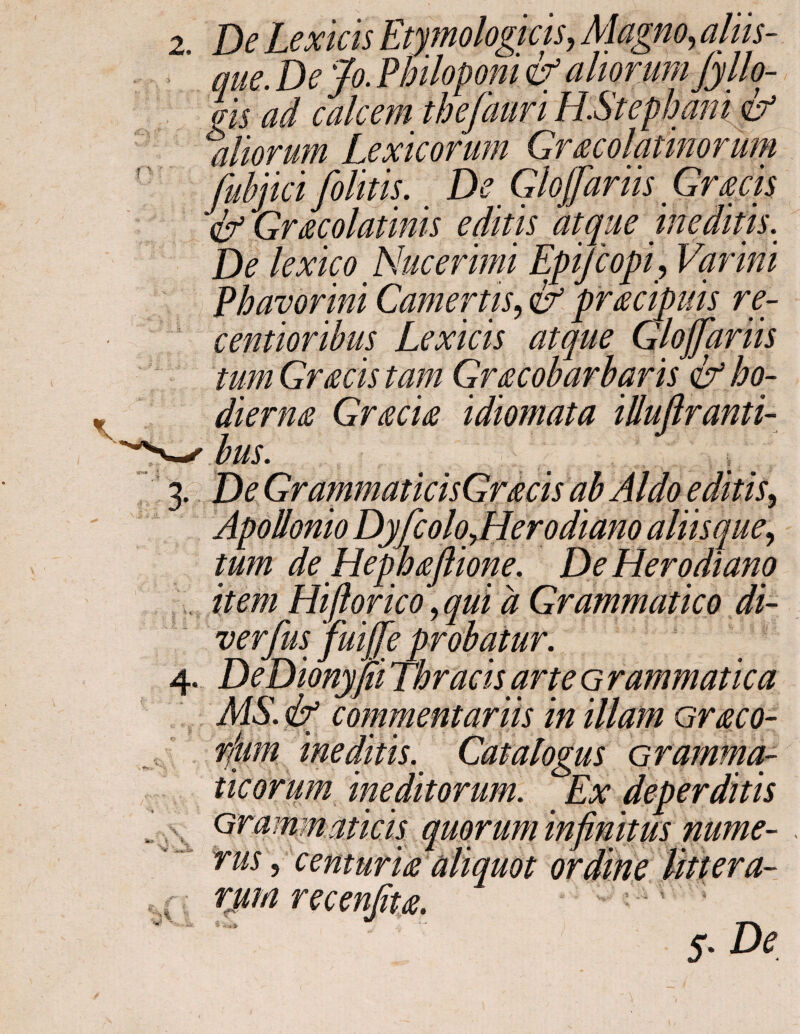 2. De Lexicis Etymologicis, Magno, aliis-
que. De Jo. Philoponi & aliorum ſyllo-
gis ad calcem theſauri H.Stephani &
aliorum Lexicorum Græcolatinorum
ſubjici ſolitis. De Gloſſariis Græcis
& Græcolatinis editis atque ineditis.
De lexico Nucerimi Epiſcopi, Varini
Phavorini Camertis, & præcipuis re-
centioribus Lexicis atque Gloſſariis
tum Græcis tam Græcobarbaris & ho-
diernæ Græciæ idiomata illuſtranti-
bus.
3. De Grammaticis Græcis ab Aldo editis,
Apollonio Dyſcolo, Herodiano aliisque,
tum de Hephæſtione. De Herodiano
item Hiſtorico, qui à Grammatico di-
verſus fuiſſe probatur.
4. De Dionyſii Thracis arte Grammatica
MS. & commentariis in illam Græco-
rum ineditis. Catalogus Gramma-
ticorum ineditorum. Ex deperditis
Grammaticis quorum infinitus nume-
rus, centuriæ aliquot ordine littera-
rum recenſitæ.
5. De